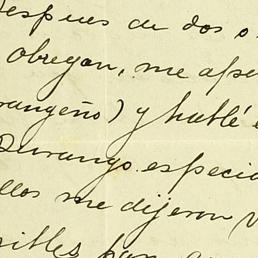 Despues de dos o
obregon, me
rangeño) y hablé
Durango especia
llos me dijeron v